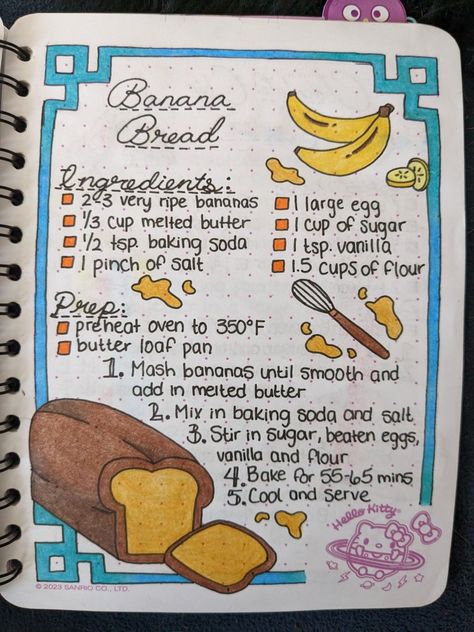 Banana
Bread
Ingredients:
2-3 very ripe bananas
1/3 cup melted butter
1/2 tsp. baking soda
1 pinch of salt
1 large egg
1 cup of sugar
1 tsp. vanilla
1.5 cups of flour
Prep:
preheat oven to 350°F
butter loaf pan
1. Mash bananas until smooth and
add in melted butter
2. Mix in baking soda and salt
3. Stir in sugar, beaten eggs,
vanilla and flour
4. Bake for 55-65 mins
5. Cool and serve
Hello Kitty®
© 2023 SANRIO CO., LTD.